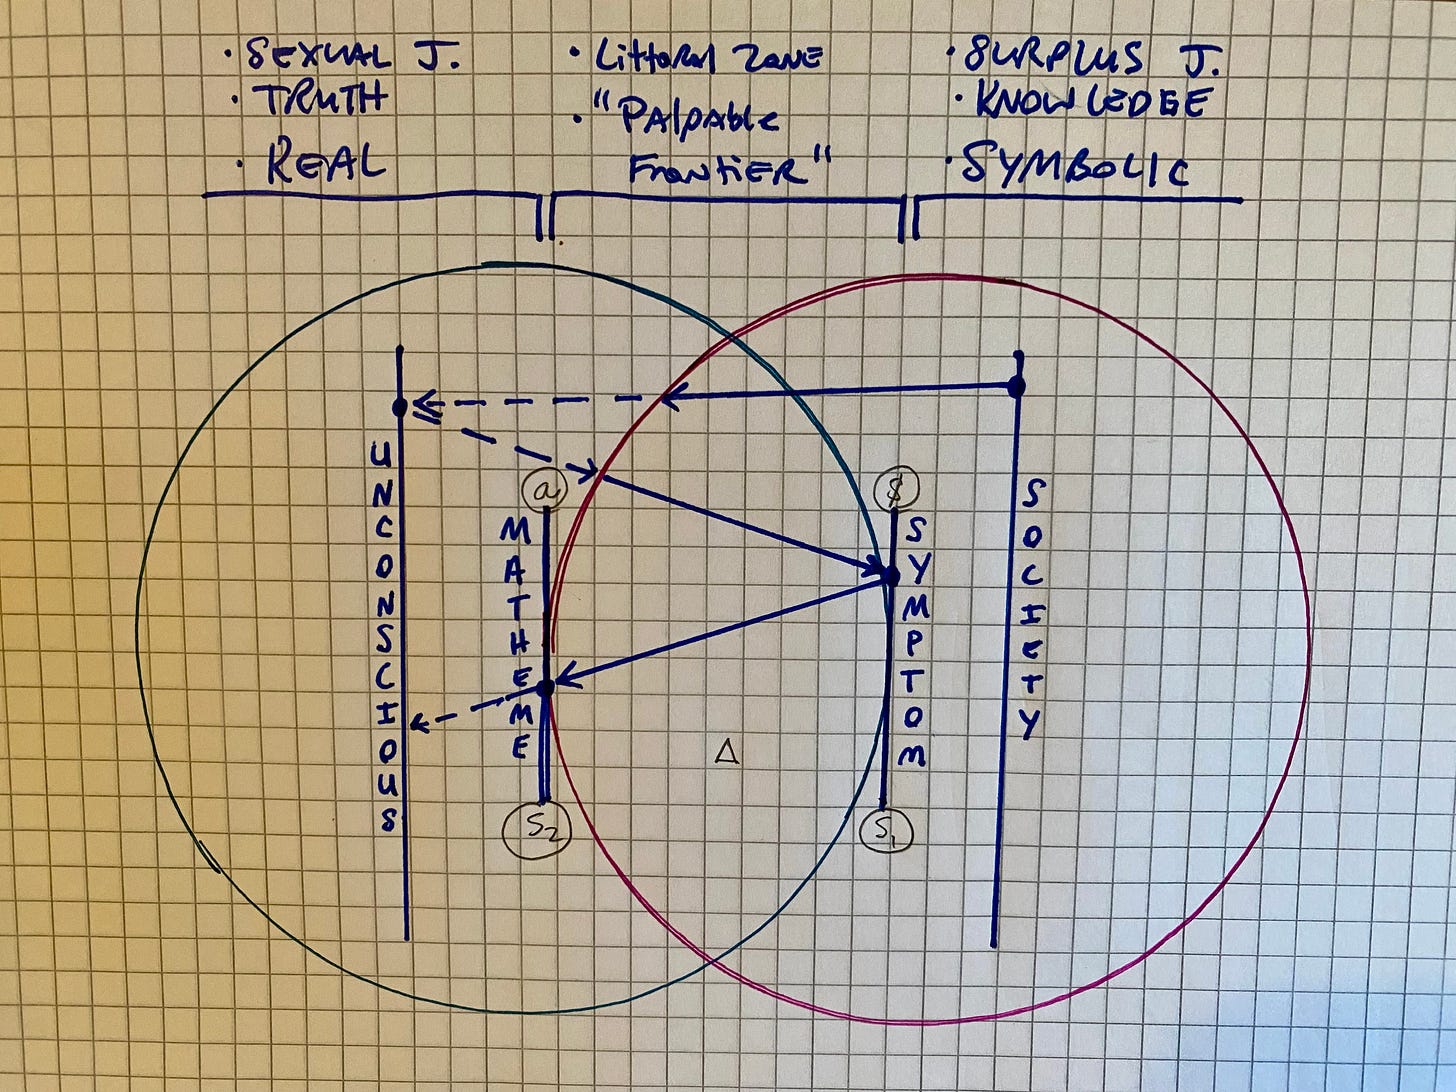 · SEXUAL J.
· TRUTH
· REAL
· Littoral ZONE
· "PAlpAble
FrontiER"
· SURPLUS J.
· KNOWLEDGE
· SYMBOLIC
UNCONSCIOUS
a
MATHEME
S2
Δ
$
SYMPTOM
S1
SOCIETY